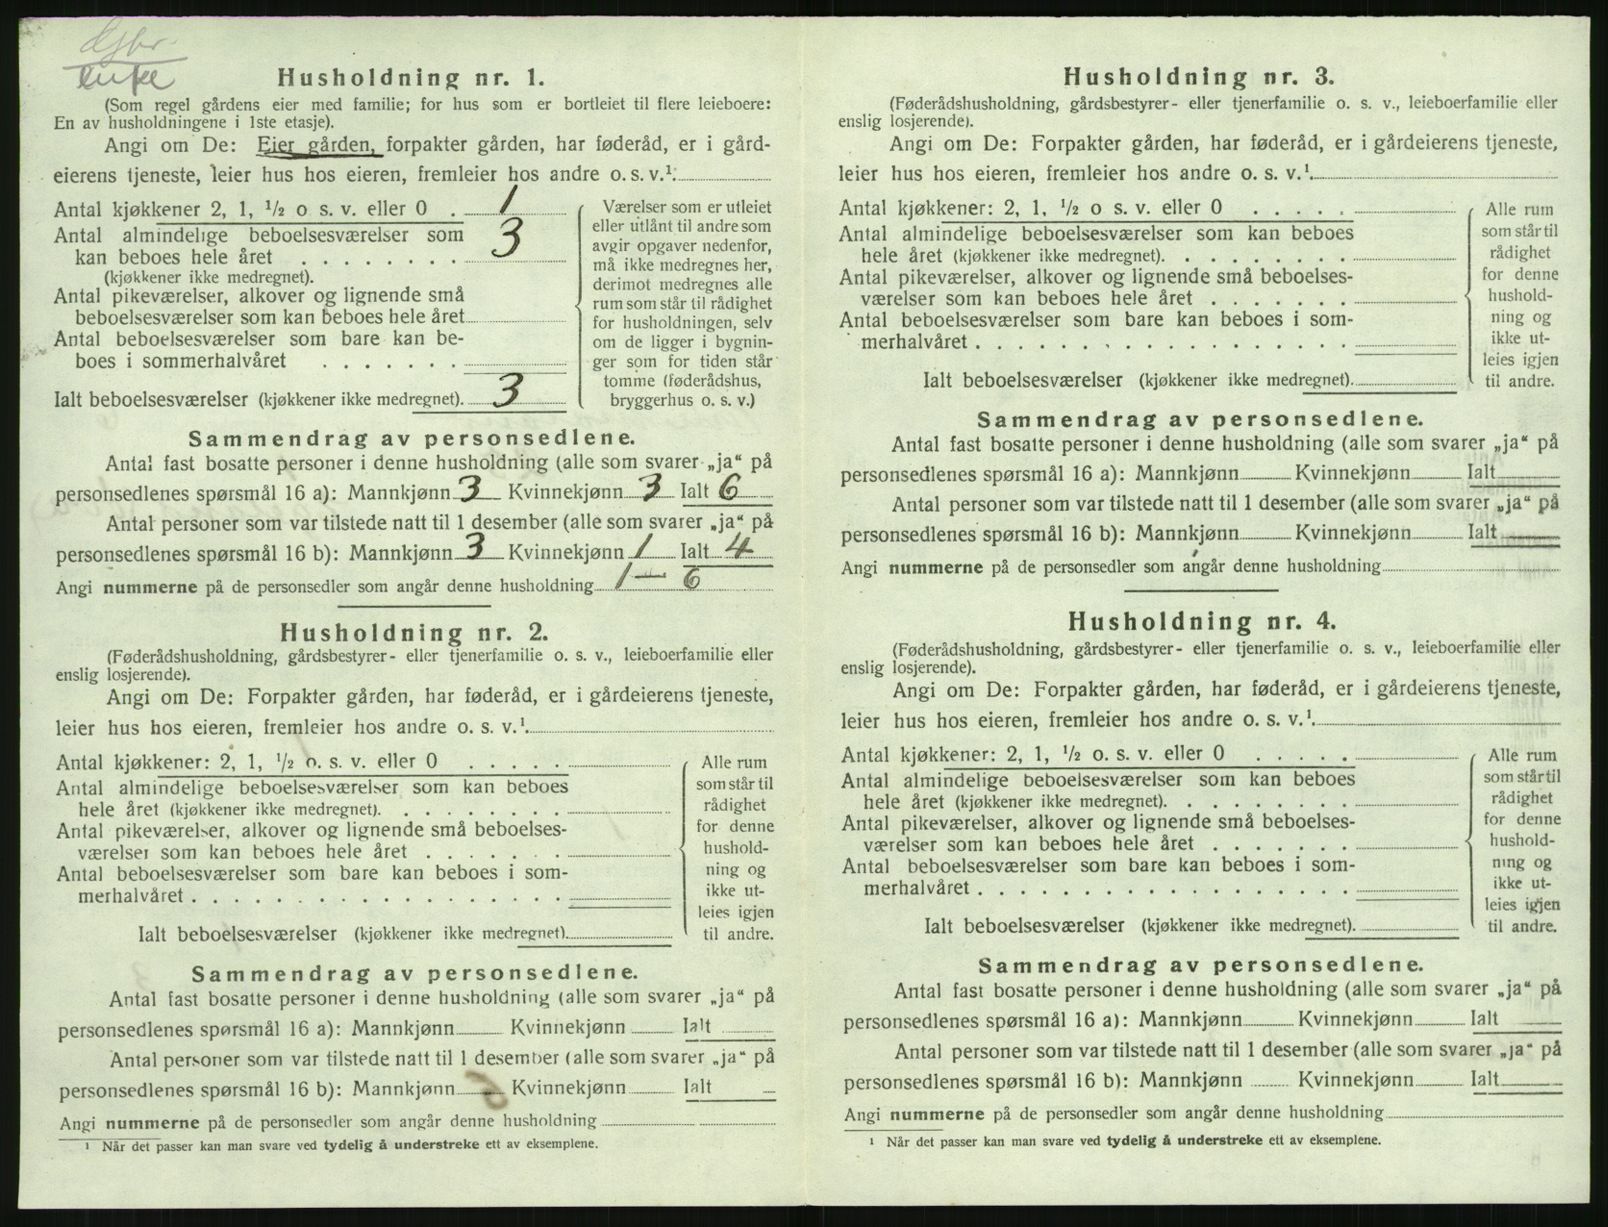 Husholdning nr. 1.
(Som regel gårdens eier med familie; for hus som er bortleiet til flere leieboere:
En av husholdningene i 1ste etasje).
Angi om De: Eier gården, forpakter gården, har føderåd, er i gård-
eierens tjeneste, leier hus hos eieren, fremleier hos andre o. s. v.¹.
Antal kjøkkener 2, 1, ½ o s. v. eller 0 . 1
Antal almindelige beboelsesværelser som
kan beboes hele året . . . . . . . . 3
(kjøkkener ikke medregnet).
Antal pikeværelser, alkover og lignende små
beboelsesværelser som kan beboes hele året
Antal beboelsesværelser som bare kan be-
boes i sommerhalvåret . . . . . . .
Ialt beboelsesværelser (kjøkkener ikke medregnet). 3
Værelser som er utleiet
eller utlånt til andre som
avgir opgaver nedenfor,
må ikke medregnes her,
derimot medregnes alle
rum som står til rådighet
for husholdningen, selv
om de ligger i bygnin-
ger som for tiden står
tomme (føderådshus,
bryggerhus o. s. v.)
Sammendrag av personsedlene.
Antal fast bosatte personer i denne husholdning (alle som svarer „ja“ på
personsedlenes spørsmål 16 a): Mannkjønn 3 Kvinnekjønn 3 Ialt 6
Antal personer som var tilstede natt til 1 desember (alle som svarer „ja“ på
personsedlenes spørsmål 16 b): Mannkjønn 3 Kvinnekjønn 1 Ialt 4
Angi nummerne på de personsedler som angår denne husholdning 1 — 6
Husholdning nr. 2.
(Føderådshusholdning, gårdsbestyrer- eller tjenerfamilie o. s. v., leieboerfamilie eller
enslig losjerende).
Angi om De: Forpakter gården, har føderåd, er i gårdeierens tjeneste,
leier hus hos eieren, fremleier hos andre o. s. v.¹.
Antal kjøkkener: 2, 1, ½ o. s. v. eller 0 . . . . .
Antal almindelige beboelsesværelser som kan beboes
hele året (kjøkkener ikke medregnet). . . . . . . . .
Antal pikeværelser, alkover og lignende små beboelses-
værelser som kan beboes hele året . . . . . . .
Antal beboelsesværelser som bare kan beboes i som-
merhalvåret . . . . . . . . . . . . . . . . . . .
Ialt beboelsesværelser (kjøkkener ikke medregnet).
Alle rum
som står til
rådighet
for denne
hushold-
ning og
ikke ut-
leies igjen
til andre.
Sammendrag av personsedlene.
Antal fast bosatte personer i denne husholdning (alle som svarer „ja“ på
personsedlenes spørsmål 16 a): Mannkjønn Kvinnekjønn Ialt
Antal personer som var tilstede natt til 1 desember (alle som svarer „ja“ på
personsedlenes spørsmål 16 b): Mannkjønn Kvinnekjønn Ialt
Angi nummerne på de personsedler som angår denne husholdning
¹ Når det passer kan man svare ved tydelig å understreke ett av eksemplene.
Husholdning nr. 3.
(Føderådshusholdning, gårdsbestyrer- eller tjenerfamilie o. s. v., leieboerfamilie eller
enslig losjerende).
Angi om De: Forpakter gården, har føderåd, er i gårdeierens tjeneste,
leier hus hos eieren, fremleier hos andre o. s. v.¹.
Antal kjøkkener: 2, 1, ½ o s. v. eller 0 . . . . .
Antal almindelige beboelsesværelser som kan beboes
hele året (kjøkkener ikke medregnet). . . . . . . . .
Antal pikeværelser, alkover og lignende små beboelses-
værelser som kan beboes hele året . . . . . . .
Antal beboelsesværelser som bare kan beboes i som-
merhalvåret . . . . . . . . . . . . . . . . . . .
Ialt beboelsesværelser (kjøkkener ikke medregnet).
Alle rum
som står til
rådighet
for denne
hushold-
ning og
ikke ut-
leies igjen
til andre.
Sammendrag av personsedlene.
Antal fast bosatte personer i denne husholdning (alle som svarer „ja“ på
personsedlenes spørsmål 16 a): Mannkjønn Kvinnekjønn Ialt
Antal personer som var tilstede natt til 1 desember (alle som svarer „ja“ på
personsedlenes spørsmål 16 b): Mannkjønn Kvinnekjønn Ialt
Angi nummerne på de personsedler som angår denne husholdning
Husholdning nr. 4.
(Føderådshusholdning, gårdsbestyrer- eller tjenerfamilie o. s. v., leieboerfamilie eller
enslig losjerende).
Angi om De: Forpakter gården, har føderåd, er i gårdeierens tjeneste,
leier hus hos eieren, fremleier hos andre o. s. v.¹.
Antal kjøkkener: 2, 1, ½ o. s. v. eller 0 . . . . .
Antal almindelige beboelsesværelser som kan beboes
hele året (kjøkkener ikke medregnet). . . . . . . . .
Antal pikeværelser, alkover og lignende små beboelses-
værelser som kan beboes hele året . . . . . . .
Antal beboelsesværelser som bare kan beboes i som-
merhalvåret . . . . . . . . . . . . . . . . . . .
Ialt beboelsesværelser (kjøkkener ikke medregnet).
Alle rum
som står til
rådighet
for denne
hushold-
ning og
ikke ut-
leies igjen
til andre.
Sammendrag av personsedlene.
Antal fast bosatte personer i denne husholdning (alle som svarer „ja“ på
personsedlenes spørsmål 16 a): Mannkjønn Kvinnekjønn Ialt
Antal personer som var tilstede natt til 1 desember (alle som svarer „ja“ på
personsedlenes spørsmål 16 b): Mannkjønn Kvinnekjønn Ialt
Angi nummerne på de personsedler som angår denne husholdning
¹ Når det passer kan man svare ved tydelig å understreke ett av eksemplene.